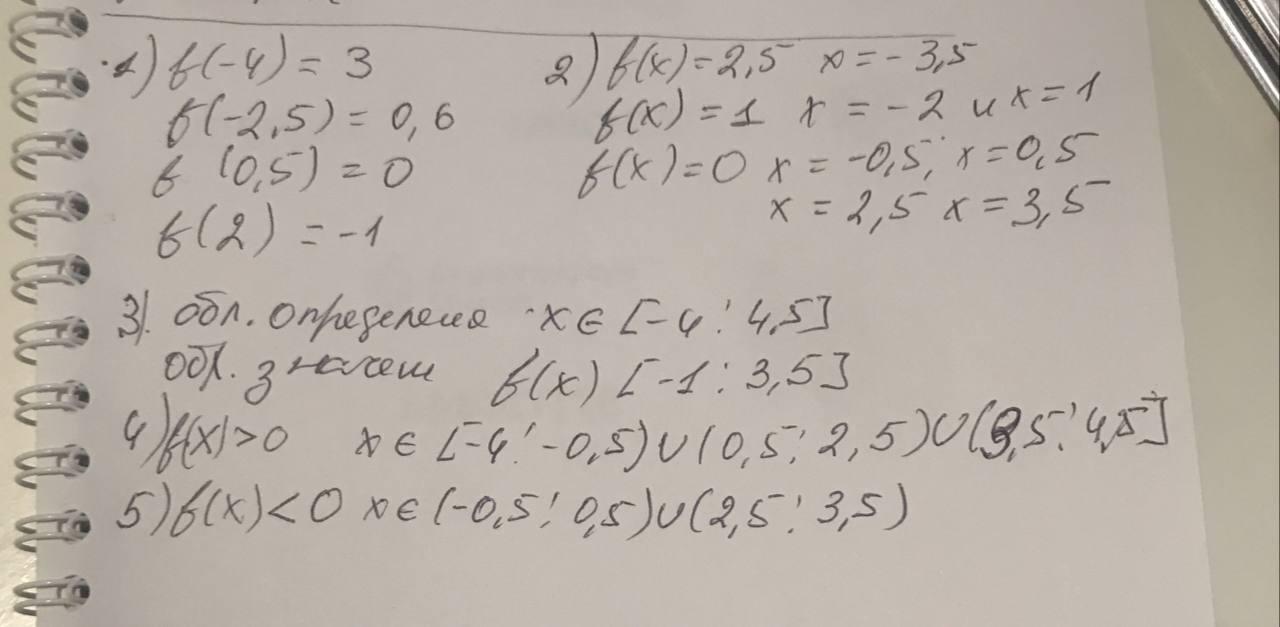 1) f(-4) = 3
f(-2,5) = 0,6
f (0,5) = 0
f(2) = -1
2) f(x) = 2,5 x = - 3,5
f(x) = 1 x = - 2 и x = 1
f(x) = 0 x = -0,5; x = 0,5
x = 2,5 x = 3,5
3). обл. определена x ∈ [-4; 4,5]
обл. значен f(x) [-1; 3,5]
4) f(x) > 0 x ∈ [-4; -0,5) ∪ (0,5; 2,5) ∪ (3,5; 4,5]
5) f(x) < 0 x ∈ (-0,5; 0,5) ∪ (2,5; 3,5)